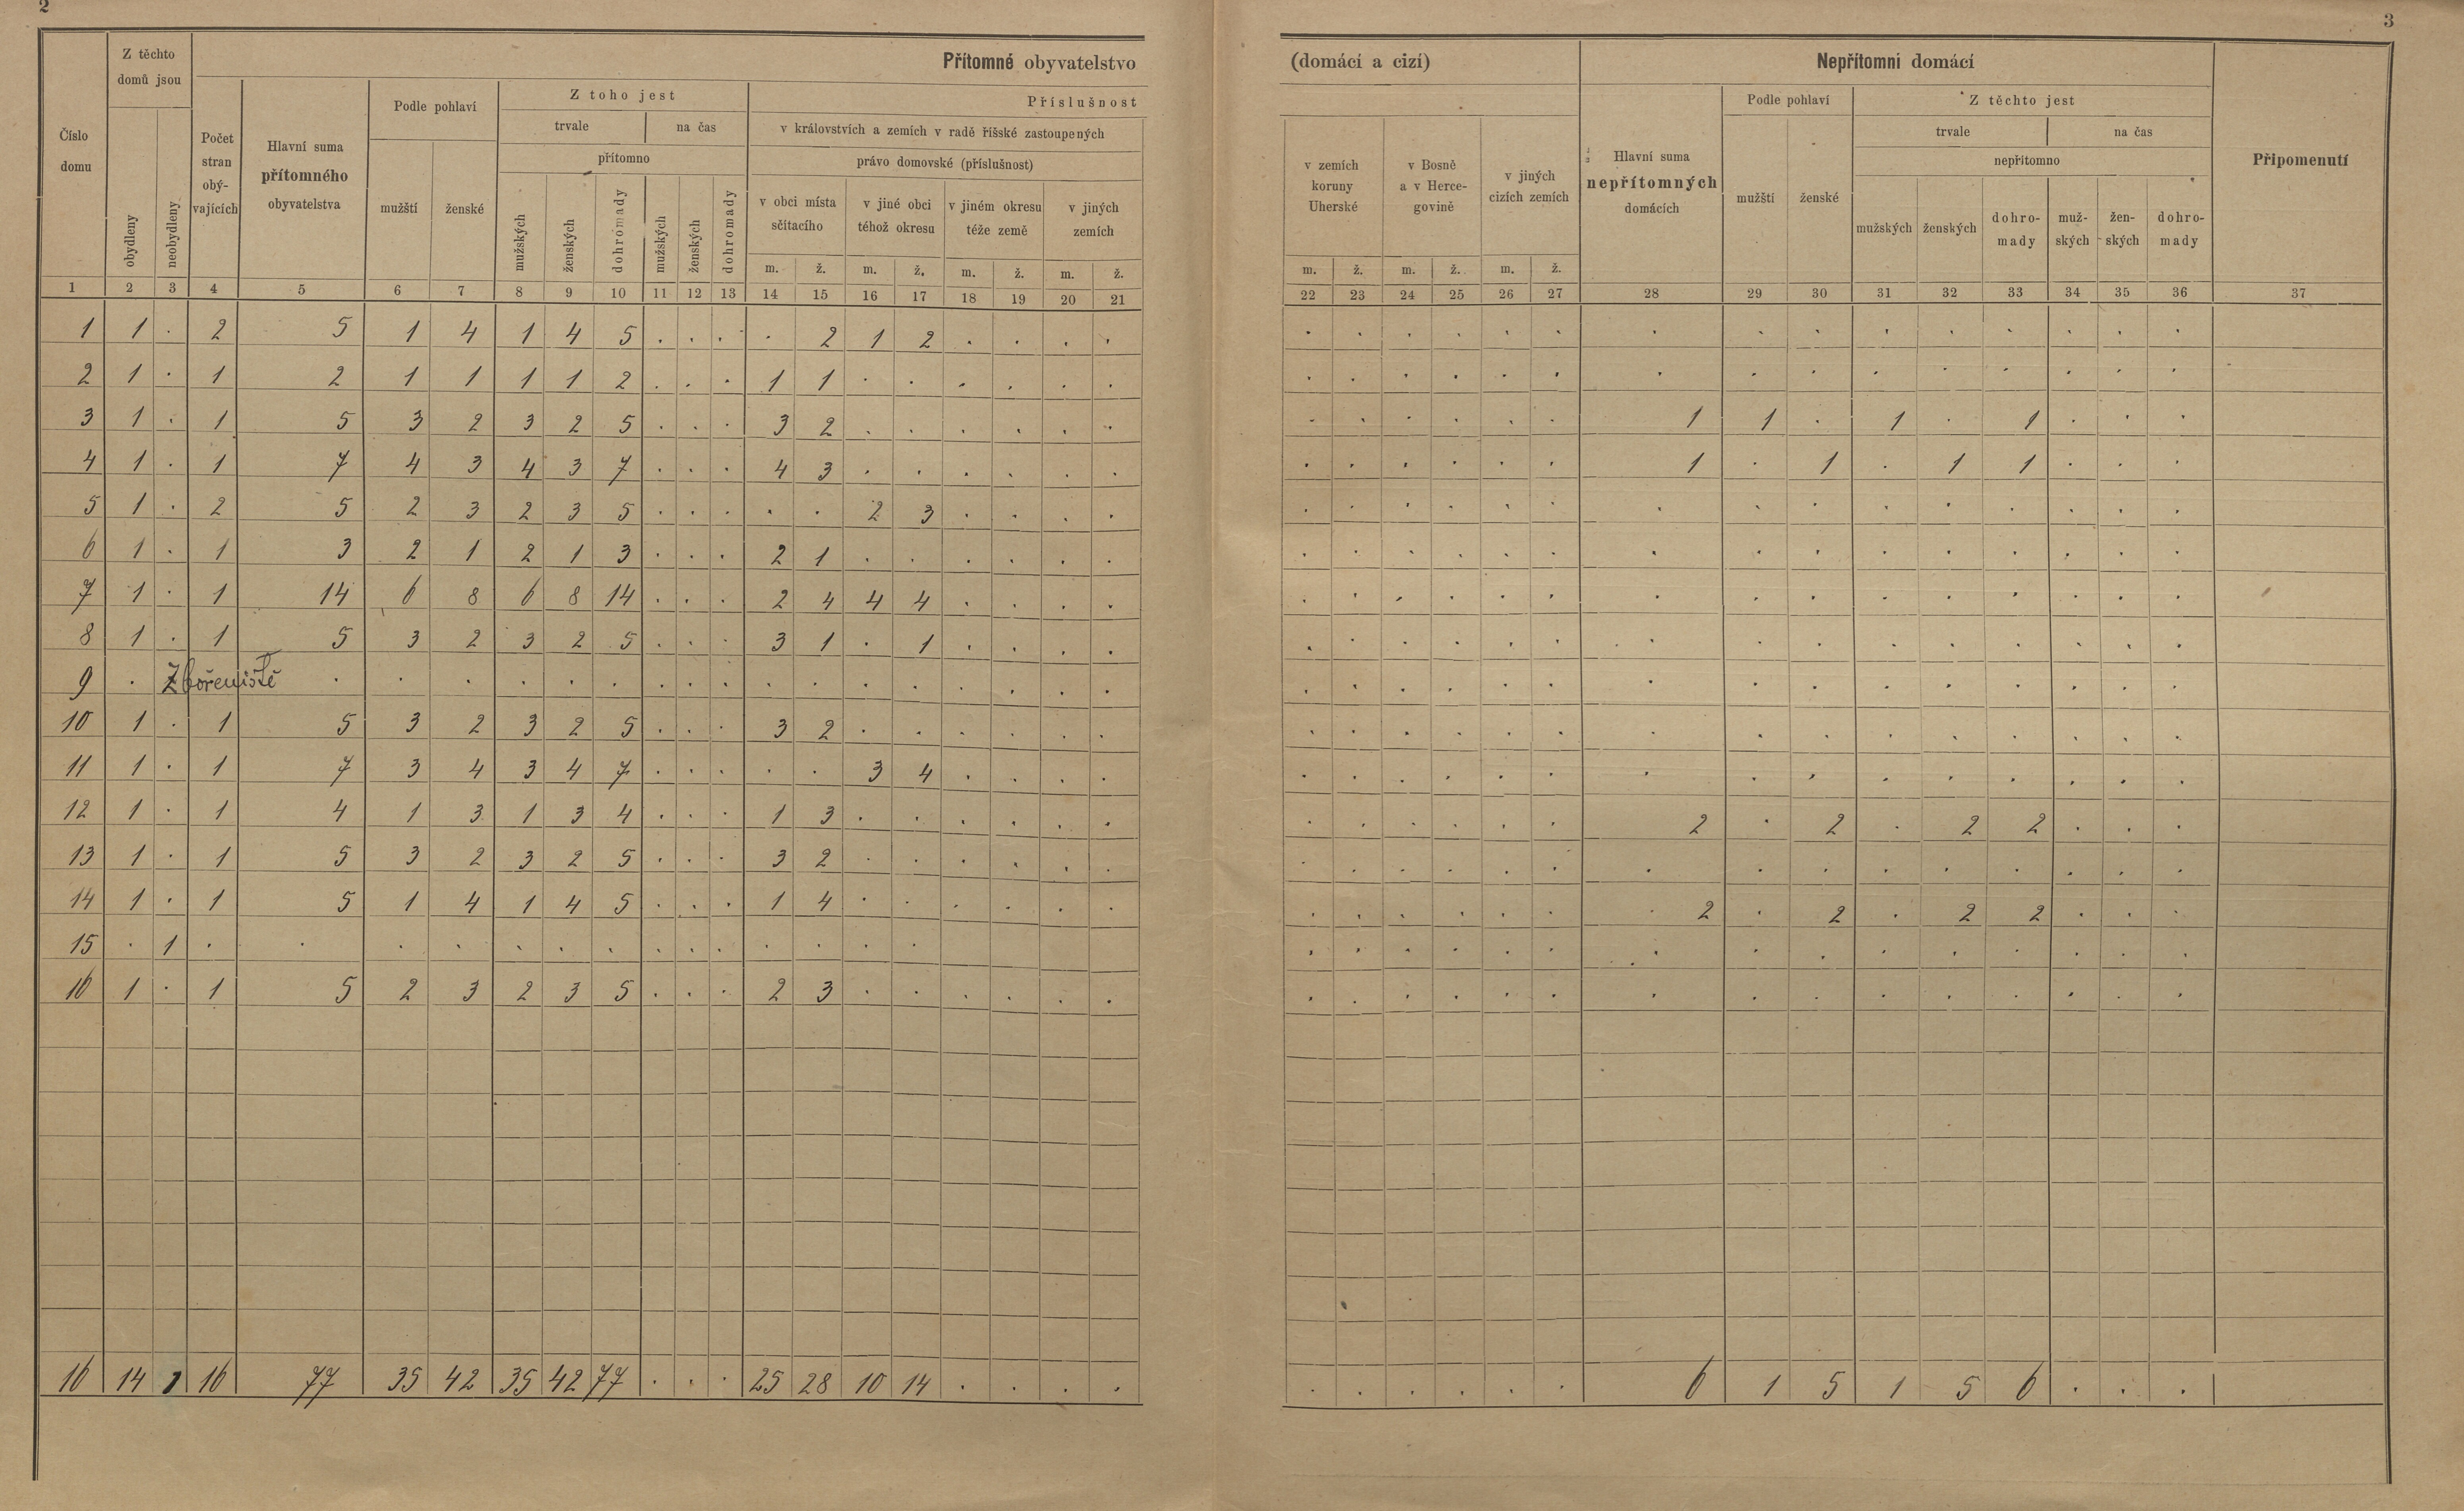 2
3
Z těchto
domů jsou
Přítomné obyvatelstvo
(domácí a cizí)
Nepřítomní domácí
Číslo
domu
obydleny
neobydleny
Počet
stran
obý-
vajících
Hlavní suma
přítomného
obyvatelstva
Podle pohlaví
mužští
ženské
Z toho jest
trvale
na čas
přítomno
mužských
ženských
dohromady
mužských
ženských
dohromady
Příslušnost
v královstvích a zemích v radě říšské zastoupených
právo domovské (příslušnost)
v obci místa
sčítacího
v jiné obci
téhož okresu
v jiném okresu
téže země
v jiných
zemích
m. ž. m. ž. m. ž. m. ž.
v zemích
koruny
Uherské
v Bosně
a v Herce-
govině
v jiných
cizích zemích
m. ž. m. ž. m. ž.
Hlavní suma
nepřítomných
domácích
Podle pohlaví
mužští
ženské
Z těchto jest
trvale
na čas
nepřítomno
mužských
ženských
dohro-
mady
muž-
ských
žen-
ských
dohro-
mady
Připomenutí
1 2 3 4 5 6 7 8 9 10 11 12 13 14 15 16 17 18 19 20 21 22 23 24 25 26 27 28 29 30 31 32 33 34 35 36 37
1 1 . 2 5 1 4 1 4 5 . . . . 2 1 2 . . . . . . . . . . . . . . . . . . .
2 1 . 1 2 1 1 1 1 2 . . . 1 1 . . . . . . . . . . . . . . . . . . . . .
3 1 . 1 5 3 2 3 2 5 . . . 3 2 . . . . . . . . . . . . 1 1 . 1 . 1 . . .
4 1 . 1 7 4 3 4 3 7 . . . 4 3 . . . . . . . . . . . . 1 . 1 . 1 1 . . .
5 1 . 2 5 2 3 2 3 5 . . . . . 2 3 . . . . . . . . . . . . . . . . . . .
6 1 . 1 3 2 1 2 1 3 . . . 2 1 . . . . . . . . . . . . . . . . . . . . .
7 1 . 1 14 6 8 6 8 14 . . . 2 4 4 4 . . . . . . . . . . . . . . . . . . .
8 1 . 1 5 3 2 3 2 5 . . . 3 1 . 1 . . . . . . . . . . . . . . . . . . .
9 . Zbořeniště . . . . . . . . . . . . . . . . . . . . . . . . . . . . . . . .
10 1 . 1 5 3 2 3 2 5 . . . 3 2 . . . . . . . . . . . . . . . . . . . . .
11 1 . 1 7 3 4 3 4 7 . . . . . 3 4 . . . . . . . . . . . . . . . . . . .
12 1 . 1 4 1 3 1 3 4 . . . 1 3 . . . . . . . . . . . . 2 . 2 . 2 2 . . .
13 1 . 1 5 3 2 3 2 5 . . . 3 2 . . . . . . . . . . . . . . . . . . . . .
14 1 . 1 5 1 4 1 4 5 . . . 1 4 . . . . . . . . . . . . 2 . 2 . 2 2 . . .
15 . 1 . . . . . . . . . . . . . . . . . . . . . . . . . . . . . .
16 1 . 1 5 2 3 2 3 5 . . . 2 3 . . . . . . . . . . . . . . . . . . . . .
16 14 1 16 77 35 42 35 42 77 . . . 25 28 10 14 . . . . . . . . . . 6 1 5 1 5 6 . . .